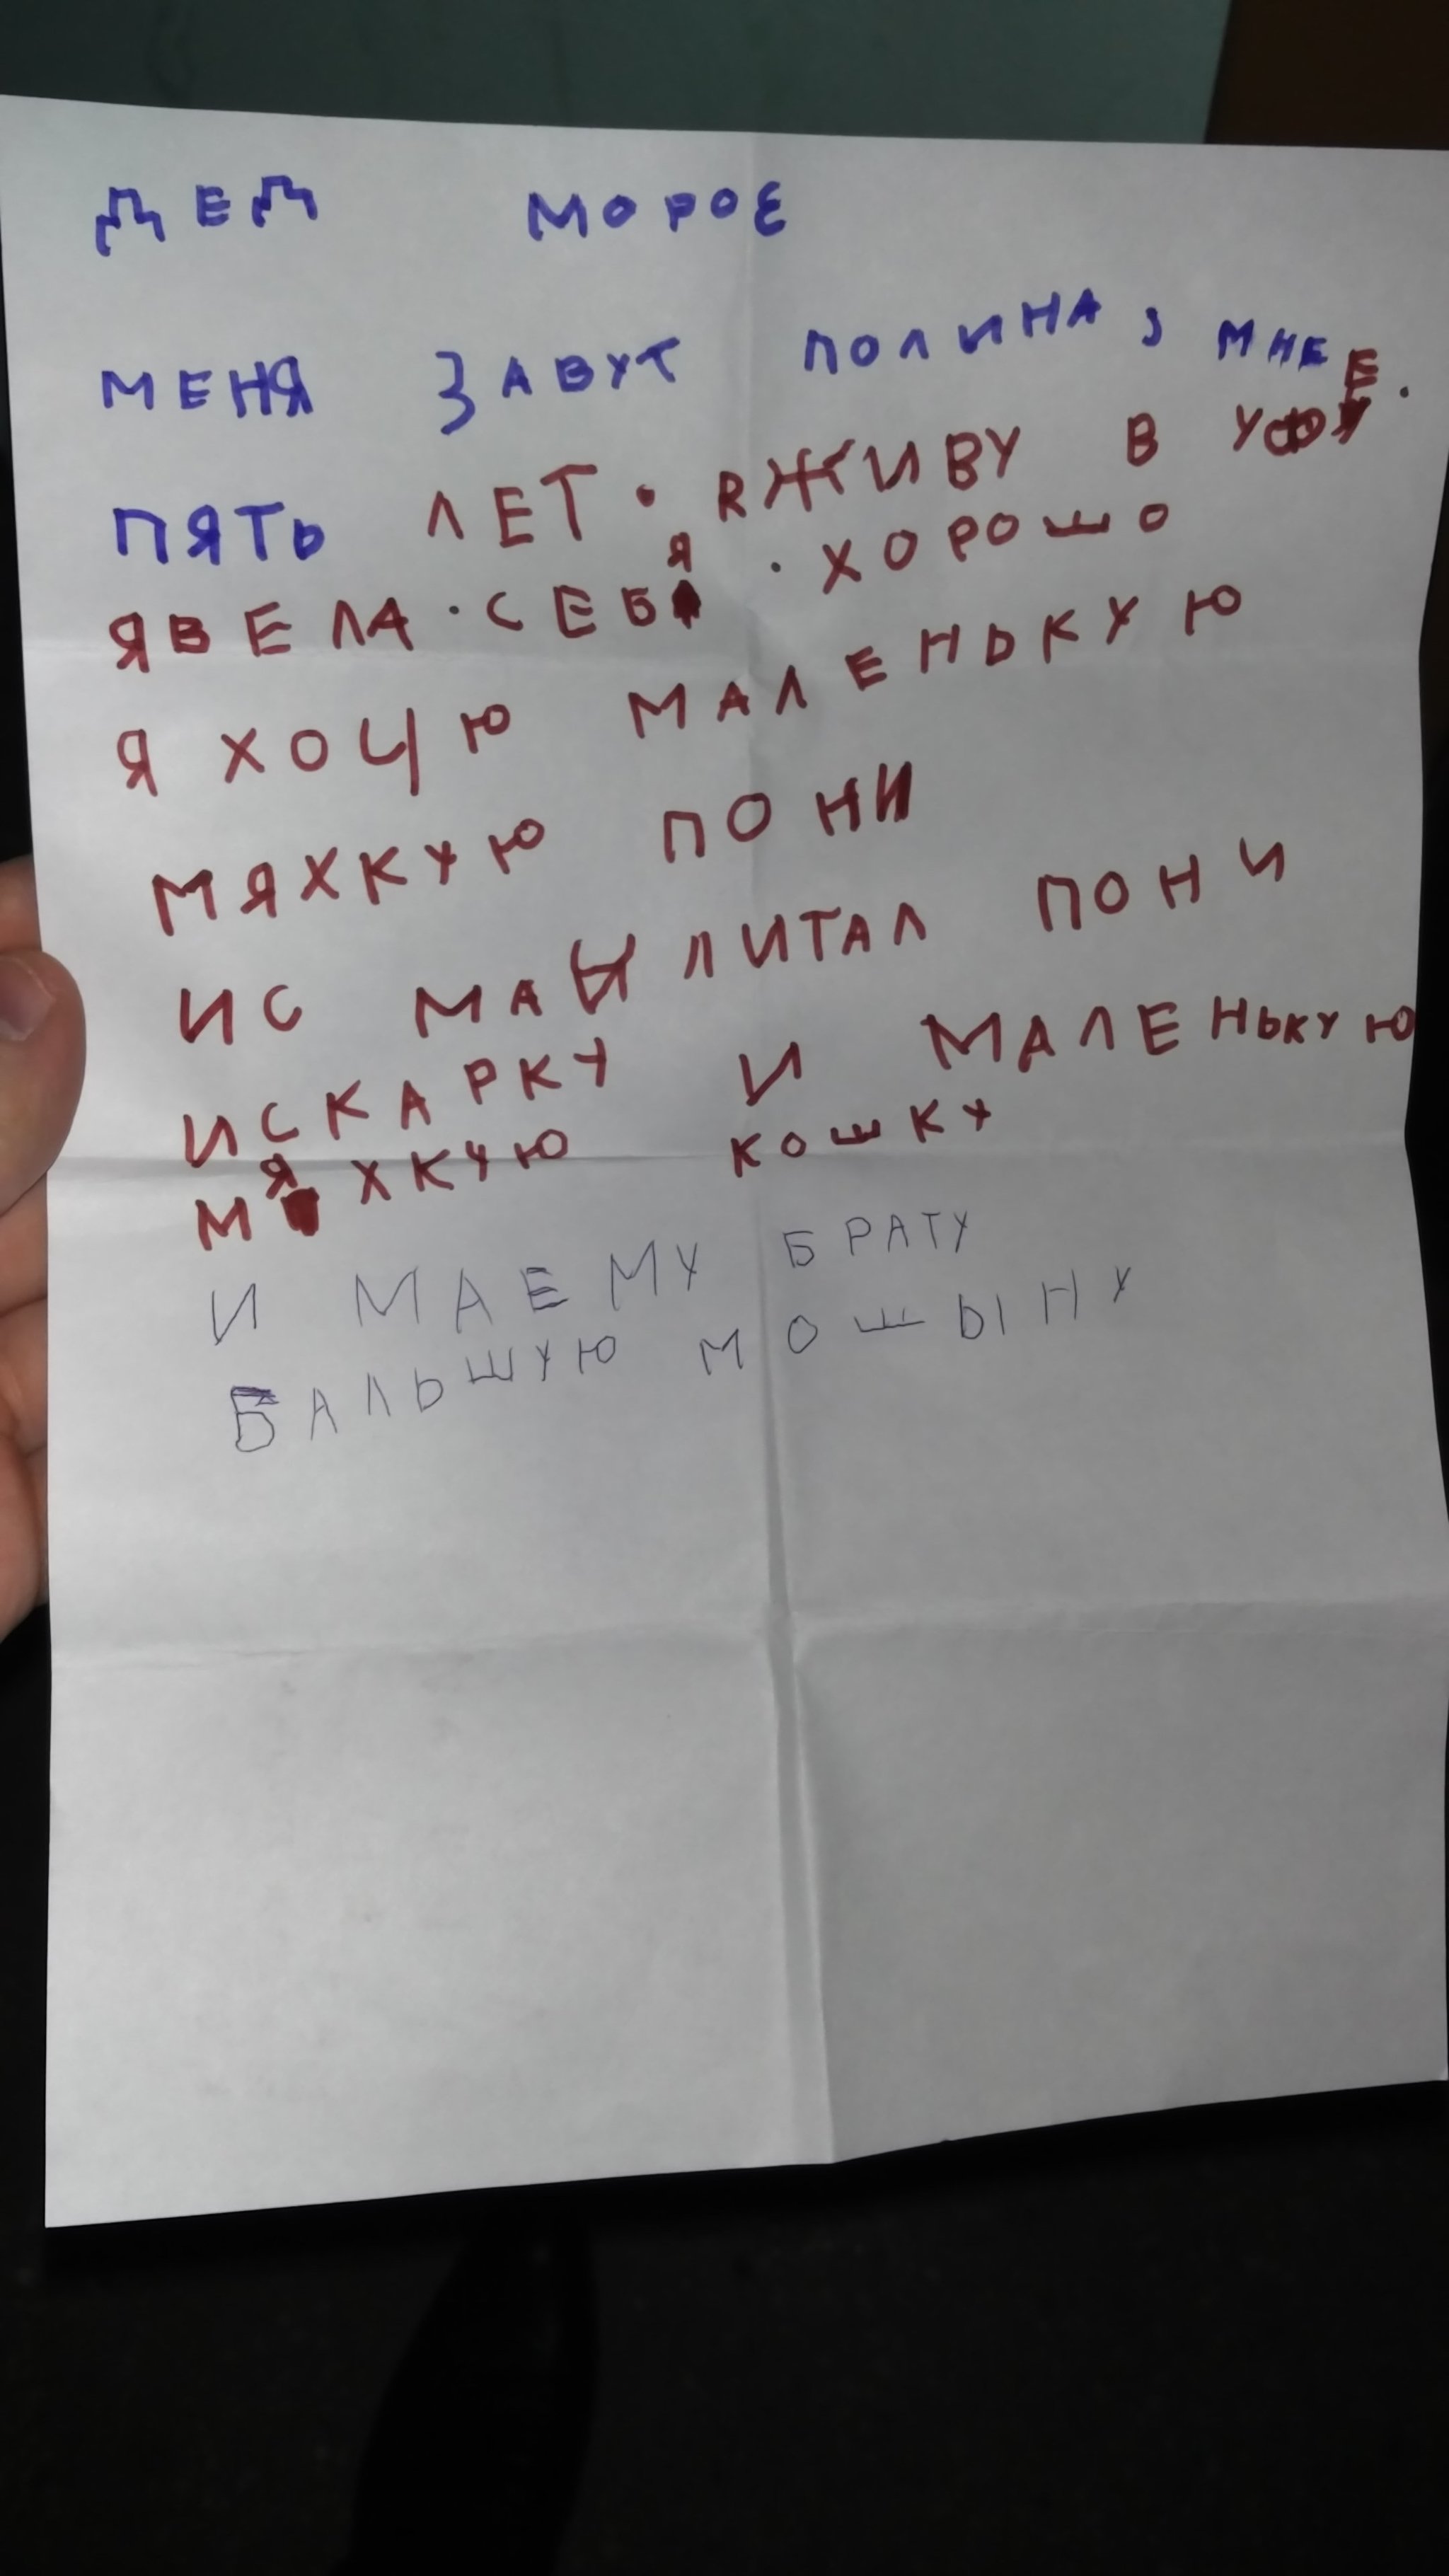 ДЕД МОРОЗ
МЕНЯ ЗАВУТ ПОЛИНА, МНЕ
ПЯТЬ ЛЕТ. ЯЖИВУ В УФЕ.
ЯВЕЛА.СЕБЯ.ХОРОШО
Я ХОЧЮ МАЛЕНЬКУЮ
МЯХКУЮ ПОНИ
ИС МАЫ ЛИТАЛ ПОНИ
ИСКАРКУ И МАЛЕНЬКУЮ
МЯХКУЮ КОШКУ
И МАЕМУ БРАТУ
БАЛЬШУЮ МОШЫНУ